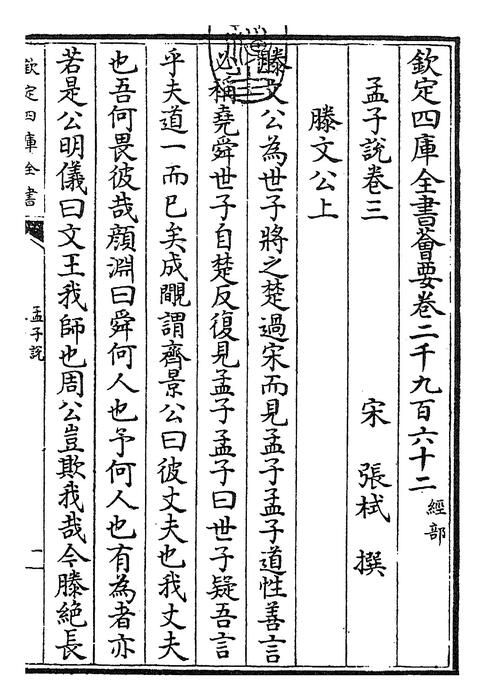 欽定四庫全書薈要卷二千九百六十二 經部
孟子說卷三
宋 張栻 撰
滕文公上
滕文公為世子將之楚過宋而見孟子孟子道性善言
必稱堯舜世子自楚反復見孟子孟子曰世子疑吾言
乎夫道一而已矣成覸謂齊景公曰彼丈夫也我丈夫
也吾何畏彼哉顔淵曰舜何人也予何人也有為者亦
若是公明儀曰文王我師也周公豈欺我哉今滕絶長
欽定四庫全書
孟子說